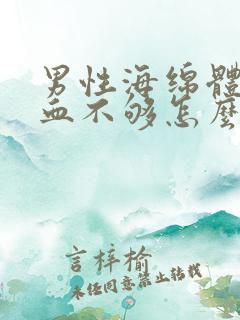 男性海绵體
血不够怎麽
言梓榆
未经同意禁止转载